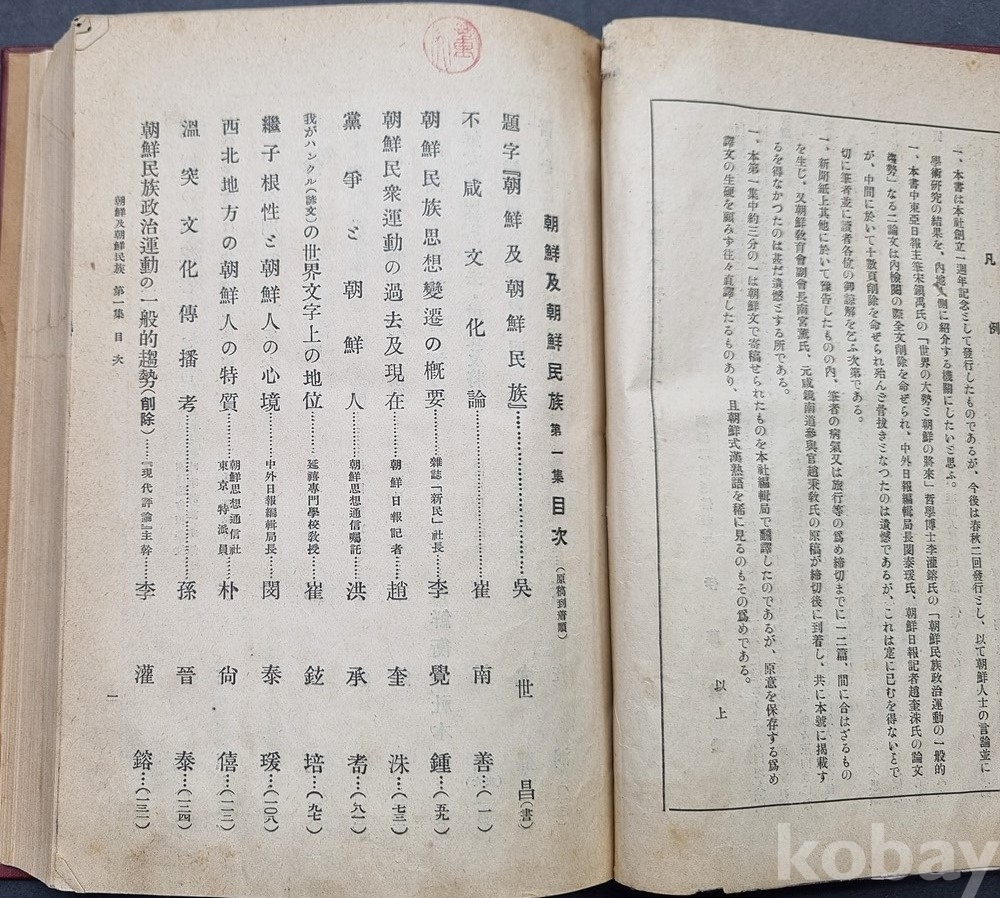 凡例
一、本書は本社創立一週年記念ミして發行したものであるが、今後は春秋二回發行ミし、以て朝鮮人士の言論並に
學術研究の結果を、內地人側に紹介する機關にしたいミ思ふ。
一、本書中東亞日報主筆宋鎭禹氏の「世界の大勢ミ朝鮮の將來」哲學博士李灌鎔氏の「朝鮮民族政治運動の一般的
趨勢」なる二論文は內檢閱の際全文削除を命ぜられ、中外日報編輯局長閔泰瑗氏、朝鮮日報記者趙奎洙氏の論文
が、中間に於いて十數頁削除を命ぜられ殆んミ骨拔きミなつたのは遺憾であるが、これは寔に已むを得ないミで
切に筆者並に讀者各位の御諒解を乞ふ次第である。
一、新聞紙上其他に於いて豫告したものの內、筆者の病氣又は旅行等の爲め締切までに一二篇、間に合はざるもの
を生じ、又朝鮮敎育會副會長南宮薰氏、元咸鏡南道參與官趙秉敎氏の原稿が締切後に到着し、共に本號に揭載す
るを得なかつたのは甚だ遺憾ミする所である。
一、本第一集中約三分の一は朝鮮文で寄稿せられたものを本社編輯局で飜譯したのであるが、原意を保存する爲め
譯文の生硬を顧みず往々直譯したるものあり、且朝鮮式漢熟語を稀に見るのもその爲めである。
以上
朝鮮及朝鮮民族 第一集 目次 (原稿到着順)
題字『朝鮮及朝鮮民族』……吳世昌(書)
不咸文化論……崔南善…(一)
朝鮮民族思想變遷の槪要……雜誌「新民」社長…李覺鍾…(五九)
朝鮮民衆運動の過去及現在……朝鮮日報記者…趙奎洙…(七三)
黨爭ミ朝鮮人……朝鮮思想通信囑託…洪承耉…(八一)
我がハンクル(諺文)の世界文字上の地位……延禧專門學校敎授…崔鉉培…(九七)
繼子根性ミ朝鮮人の心境……中外日報編輯局長…閔泰瑗…(一〇八)
西北地方の朝鮮人の特質……朝鮮思想通信社東京特派員…朴尙僖…(一二三)
溫突文化傳播考……孫晉泰…(一二四)
朝鮮民族政治運動の一般的趨勢(削除)……『現代評論』主幹…李灌鎔…(一三一)
朝鮮及朝鮮民族 第一集 目次
一
kobay